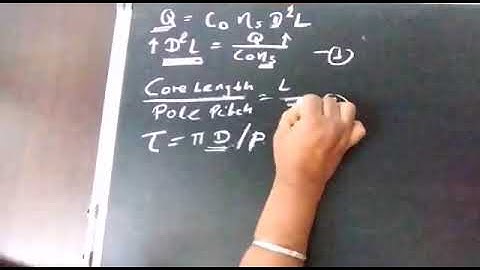 Q = C₀ ns D²L
↑ D²L = Q ↑ / C₀ ns — ①
Core Length / Pole Pitch = L /
τ = π D / P